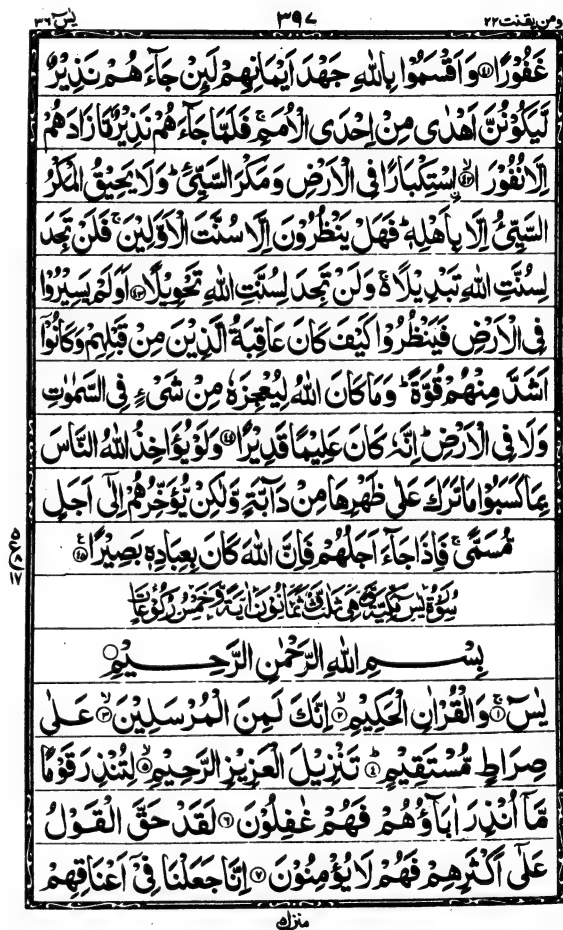 ومن یقنت ۲۲ ۳۹۷ یٰسٓ ۳۶
غَفُوْرًا ﴿۴۱﴾ وَاَقْسَمُوْا بِاللّٰهِ جَهْدَ اَيْمَانِهِمْ لَىِٕنْ جَآءَهُمْ نَذِيْرٌ
لَّيَكُوْنُنَّ اَهْدٰى مِنْ اِحْدَى الْاُمَمِ ۚ فَلَمَّا جَآءَهُمْ نَذِيْرٌ مَّا زَادَهُمْ
اِلَّا نُفُوْرَا ﴿۴۲﴾ۙ اسْتِكْبَارًا فِى الْاَرْضِ وَمَكْرَ السَّيِّئِ ؕ وَلَا يَحِيْقُ الْمَكْرُ
السَّيِّئُ اِلَّا بِاَهْلِهٖ ؕ فَهَلْ يَنْظُرُوْنَ اِلَّا سُنَّتَ الْاَوَّلِيْنَ ۚ فَلَنْ تَجِدَ
لِسُنَّتِ اللّٰهِ تَبْدِيْلًا ۬ۚ وَلَنْ تَجِدَ لِسُنَّتِ اللّٰهِ تَحْوِيْلًا ﴿۴۳﴾ اَوَلَمْ يَسِيْرُوْا
فِى الْاَرْضِ فَيَنْظُرُوْا كَيْفَ كَانَ عَاقِبَةُ الَّذِيْنَ مِنْ قَبْلِهِمْ وَكَانُوْۤا
اَشَدَّ مِنْهُمْ قُوَّةً ؕ وَمَا كَانَ اللّٰهُ لِيُعْجِزَهٗ مِنْ شَىْءٍ فِى السَّمٰوٰتِ
وَلَا فِى الْاَرْضِ ؕ اِنَّهٗ كَانَ عَلِيْمًا قَدِيْرًا ﴿۴۴﴾ وَلَوْ يُؤَاخِذُ اللّٰهُ النَّاسَ
بِمَا كَسَبُوْا مَا تَرَكَ عَلٰى ظَهْرِهَا مِنْ دَآبَّةٍ وَّلٰكِنْ يُّؤَخِّرُهُمْ اِلٰٓى اَجَلٍ
مُّسَمًّى ۚ فَاِذَا جَآءَ اَجَلُهُمْ فَاِنَّ اللّٰهَ كَانَ بِعِبَادِهٖ بَصِيْرًا ﴿۴۵﴾
سُوْرَةُ يٰسٓ مَكِّيَّةٌ وَّهِىَ ثَلٰثٌ وَّثَمَانُوْنَ اٰيَةً وَّخَمْسُ رُكُوْعَاتٍ
بِسْمِ اللّٰهِ الرَّحْمٰنِ الرَّحِيْمِ
يٰسٓ ﴿۱﴾ۚ وَالْقُرْاٰنِ الْحَكِيْمِ ﴿۲﴾ۙ اِنَّكَ لَمِنَ الْمُرْسَلِيْنَ ﴿۳﴾ۙ عَلٰى
صِرَاطٍ مُّسْتَقِيْمٍ ﴿۴﴾ؕ تَنْزِيْلَ الْعَزِيْزِ الرَّحِيْمِ ﴿۵﴾ۙ لِتُنْذِرَ قَوْمًا
مَّاۤ اُنْذِرَ اٰبَآؤُهُمْ فَهُمْ غٰفِلُوْنَ ﴿۶﴾ لَقَدْ حَقَّ الْقَوْلُ
عَلٰٓى اَكْثَرِهِمْ فَهُمْ لَا يُؤْمِنُوْنَ ﴿۷﴾ اِنَّا جَعَلْنَا فِىْۤ اَعْنَاقِهِمْ
منزل